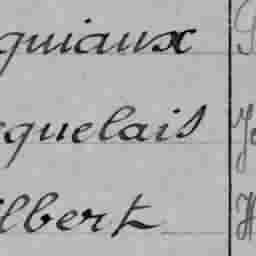 quiaux
cquelais
lbert